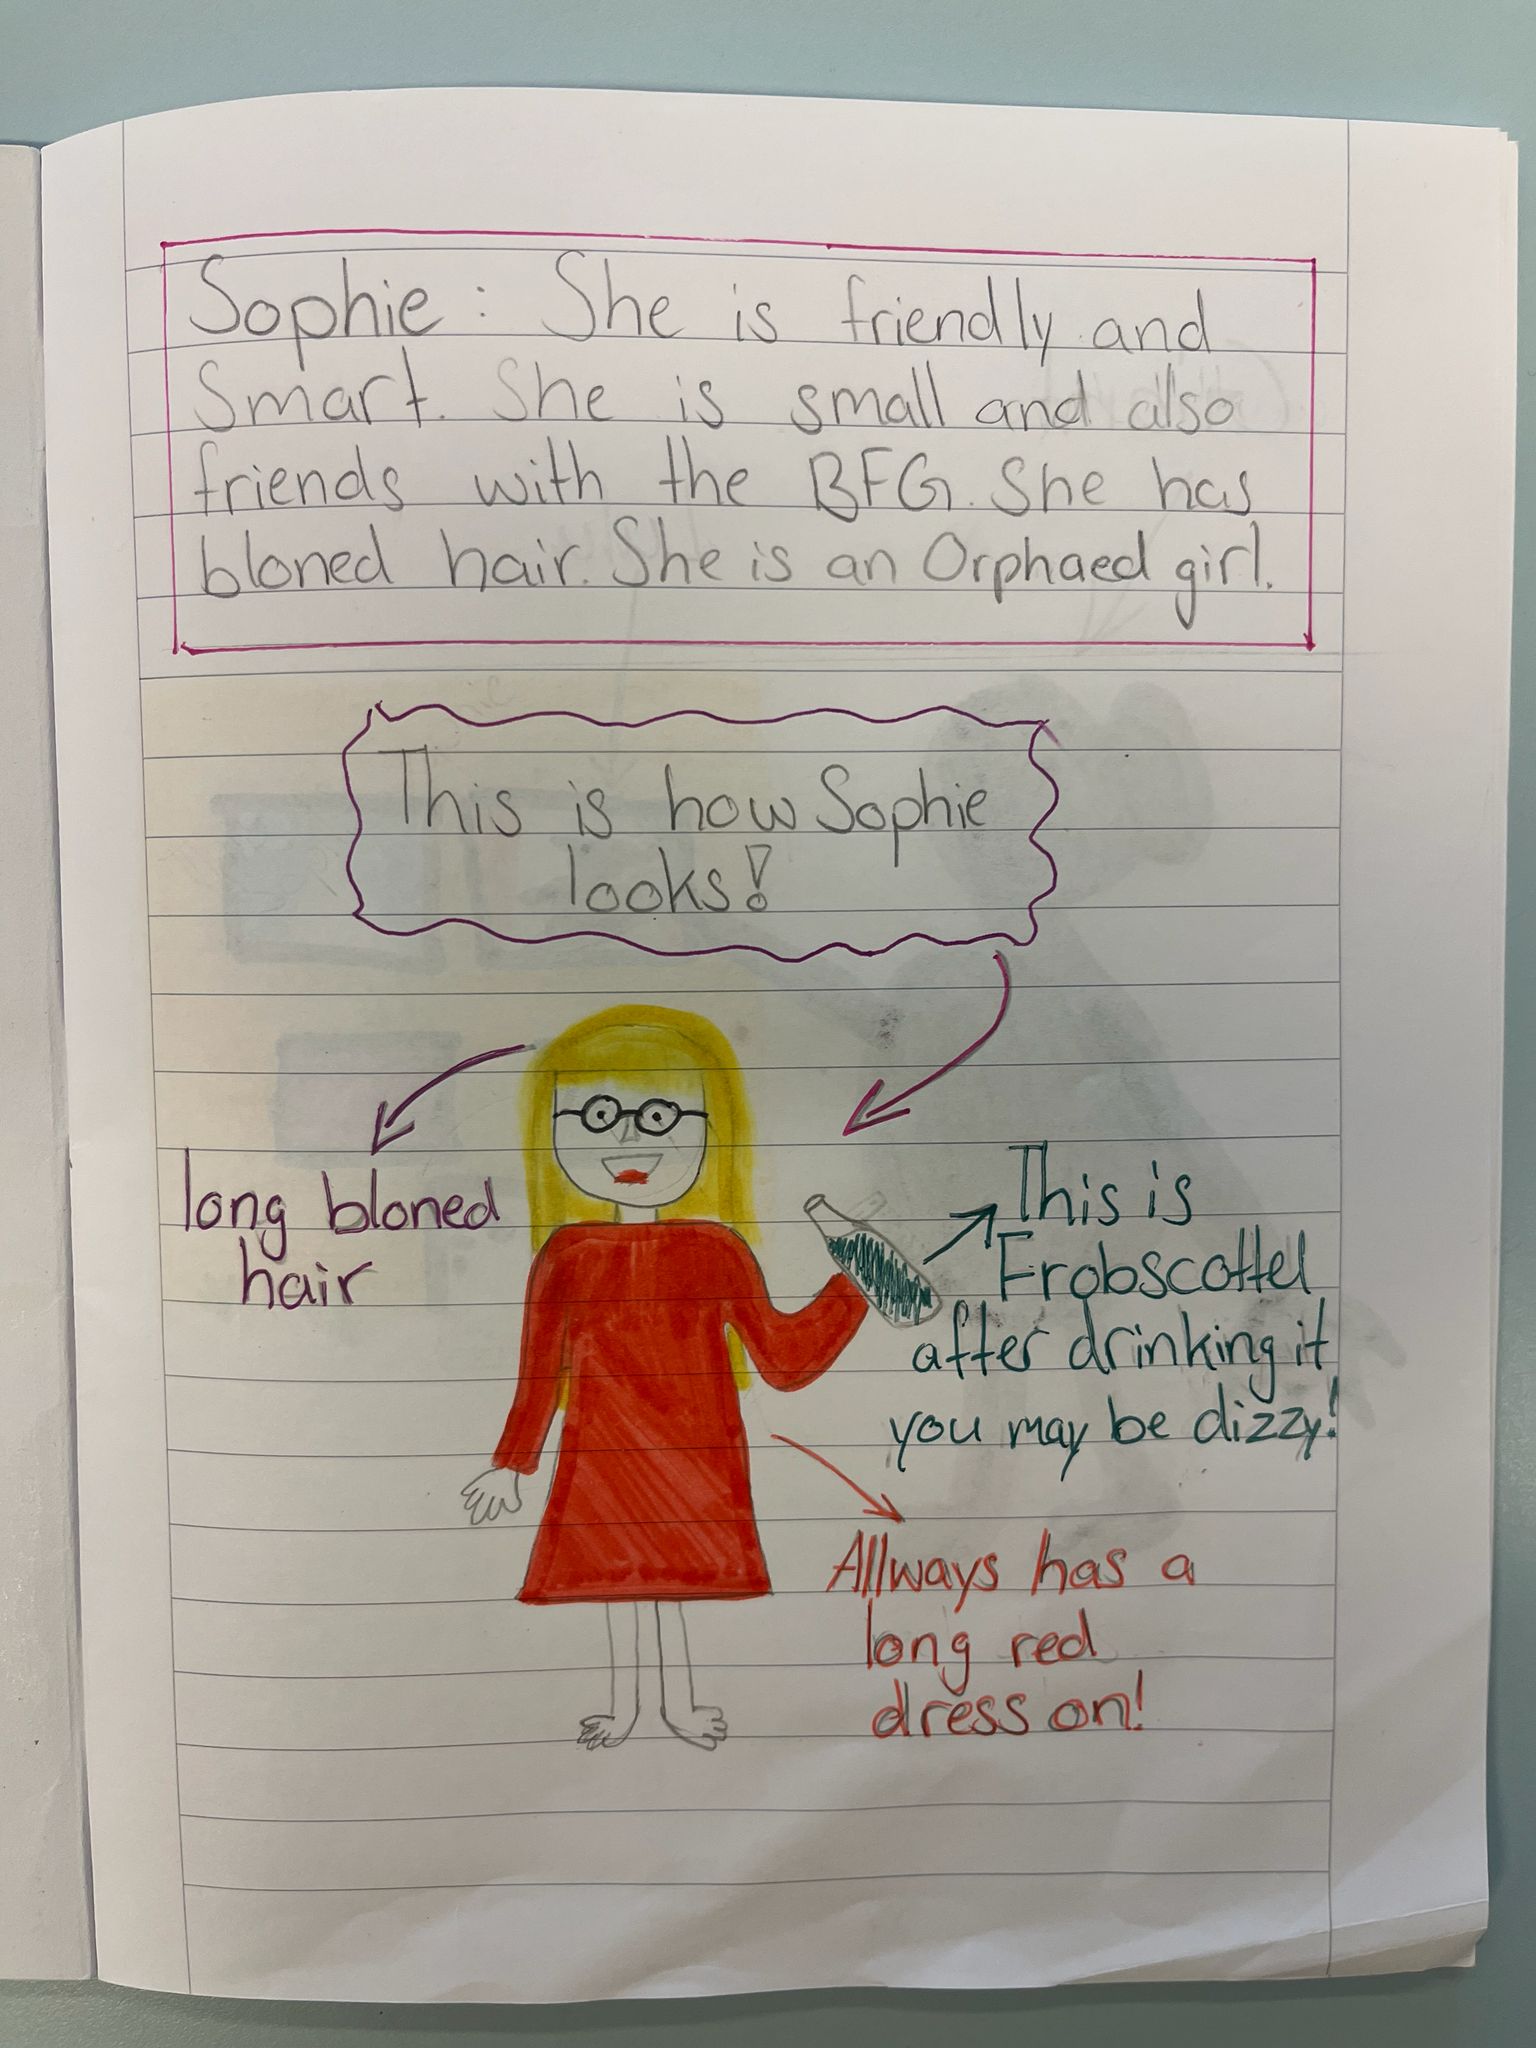 Sophie: She is friendly and
Smart. She is small and also
friends with the BFG. She has
bloned hair. She is an Orphaed girl.
This is how Sophie
looks!
long bloned
hair
This is
Frobscottel
after drinking it
you may be dizzy!
Allways has a
long red
dress on!